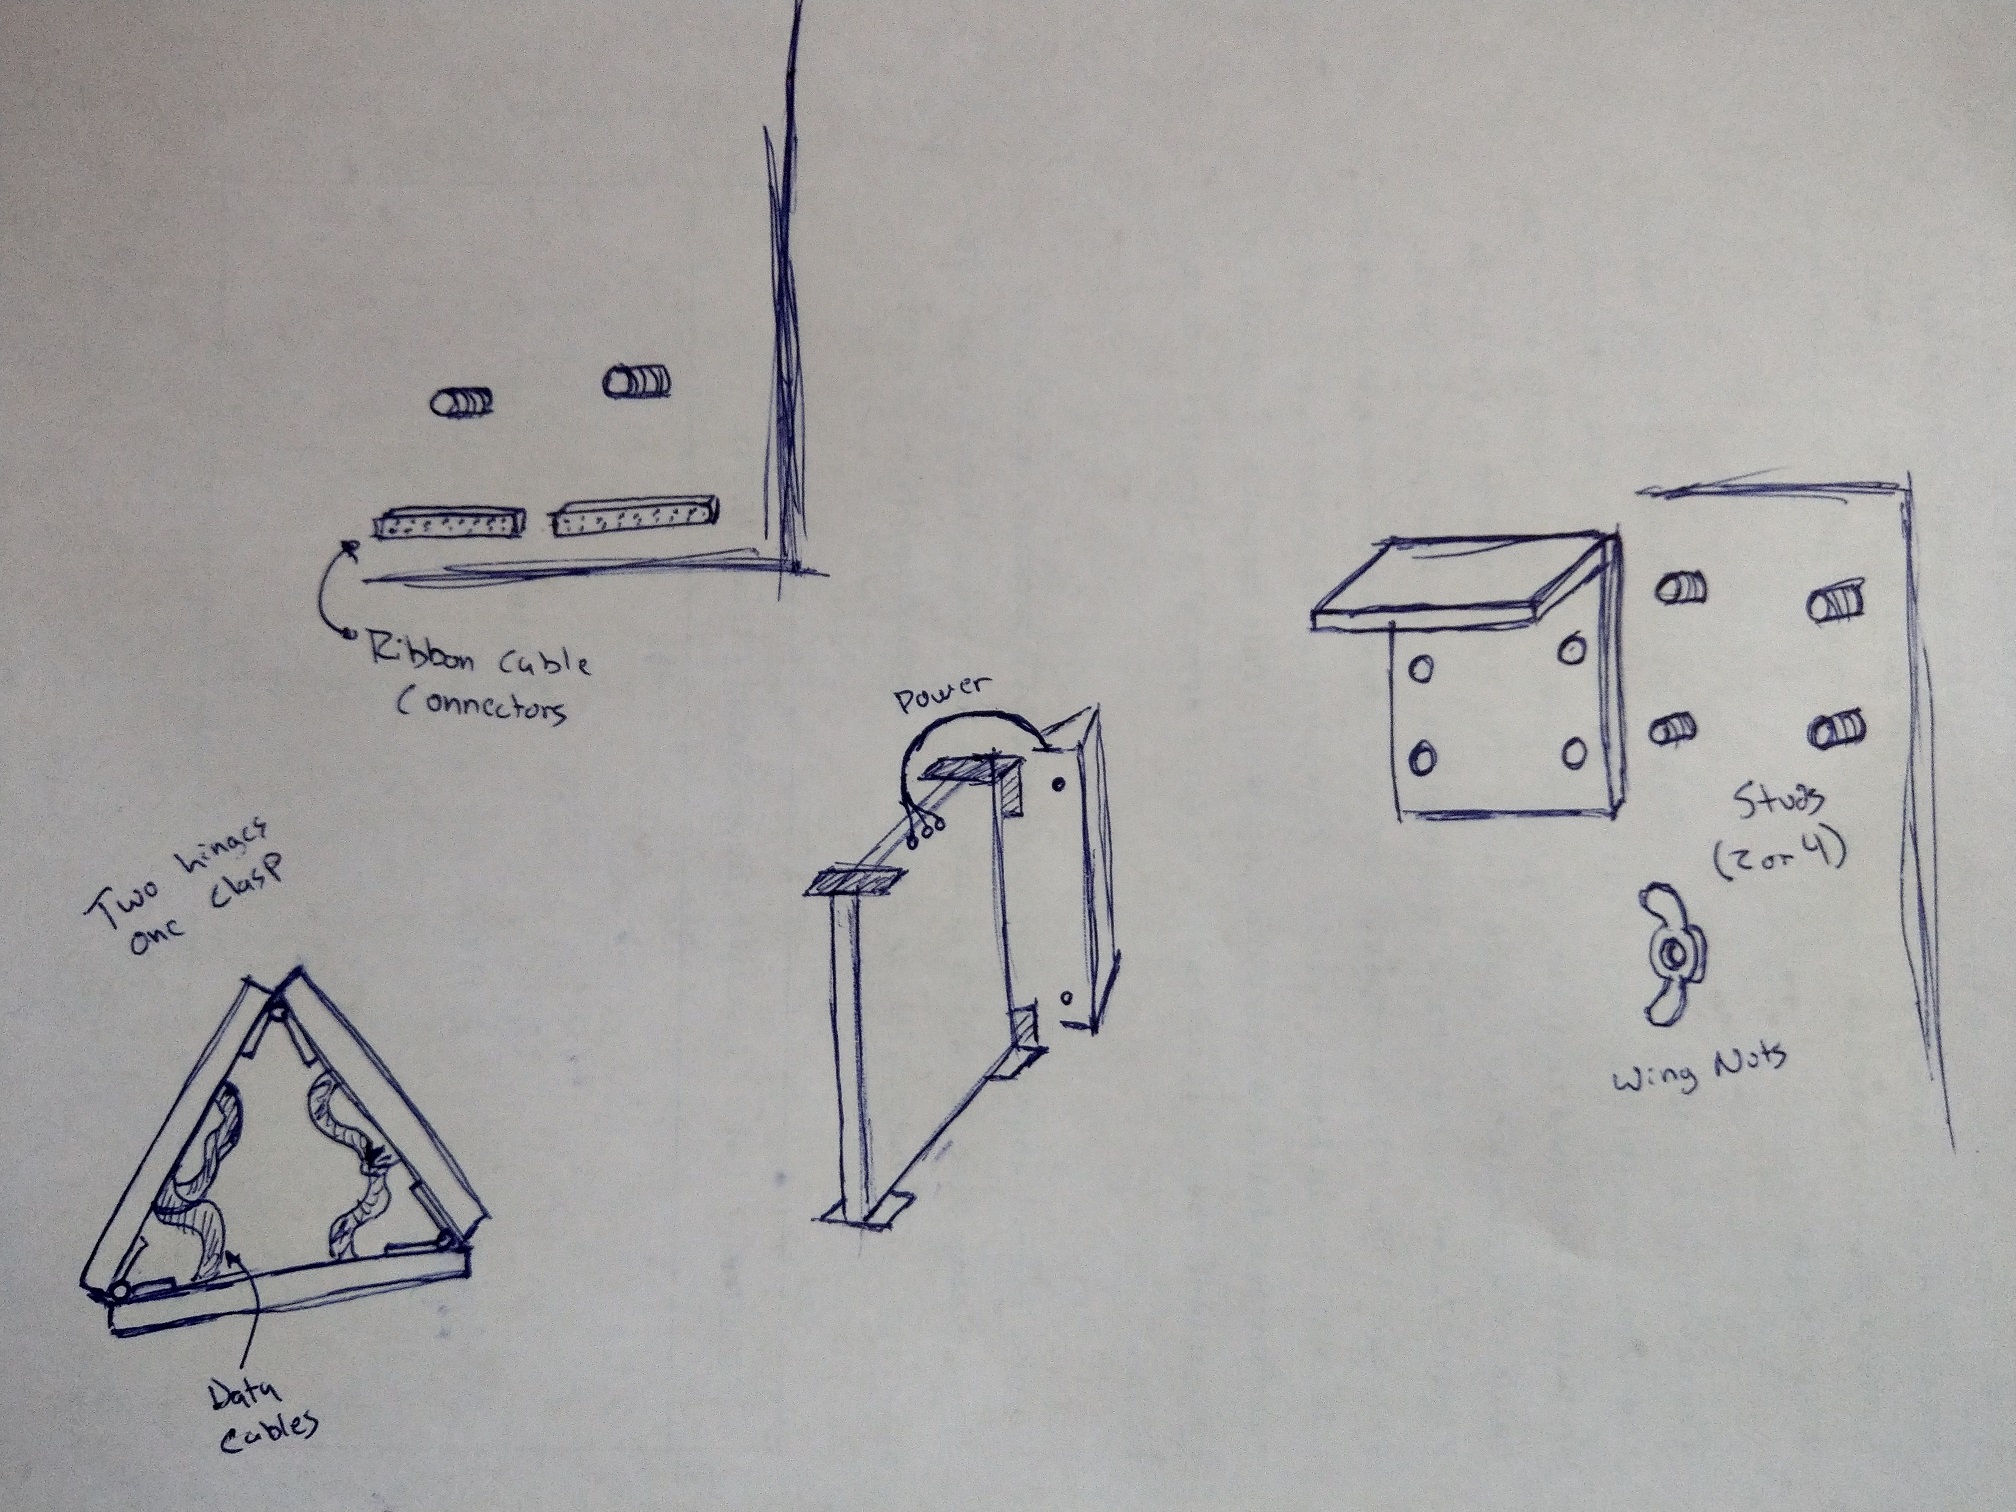 Ribbon Cable
Connectors
Power
Studs
(2 or 4)
Wing Nuts
Two hinges
one clasp
Data
Cables